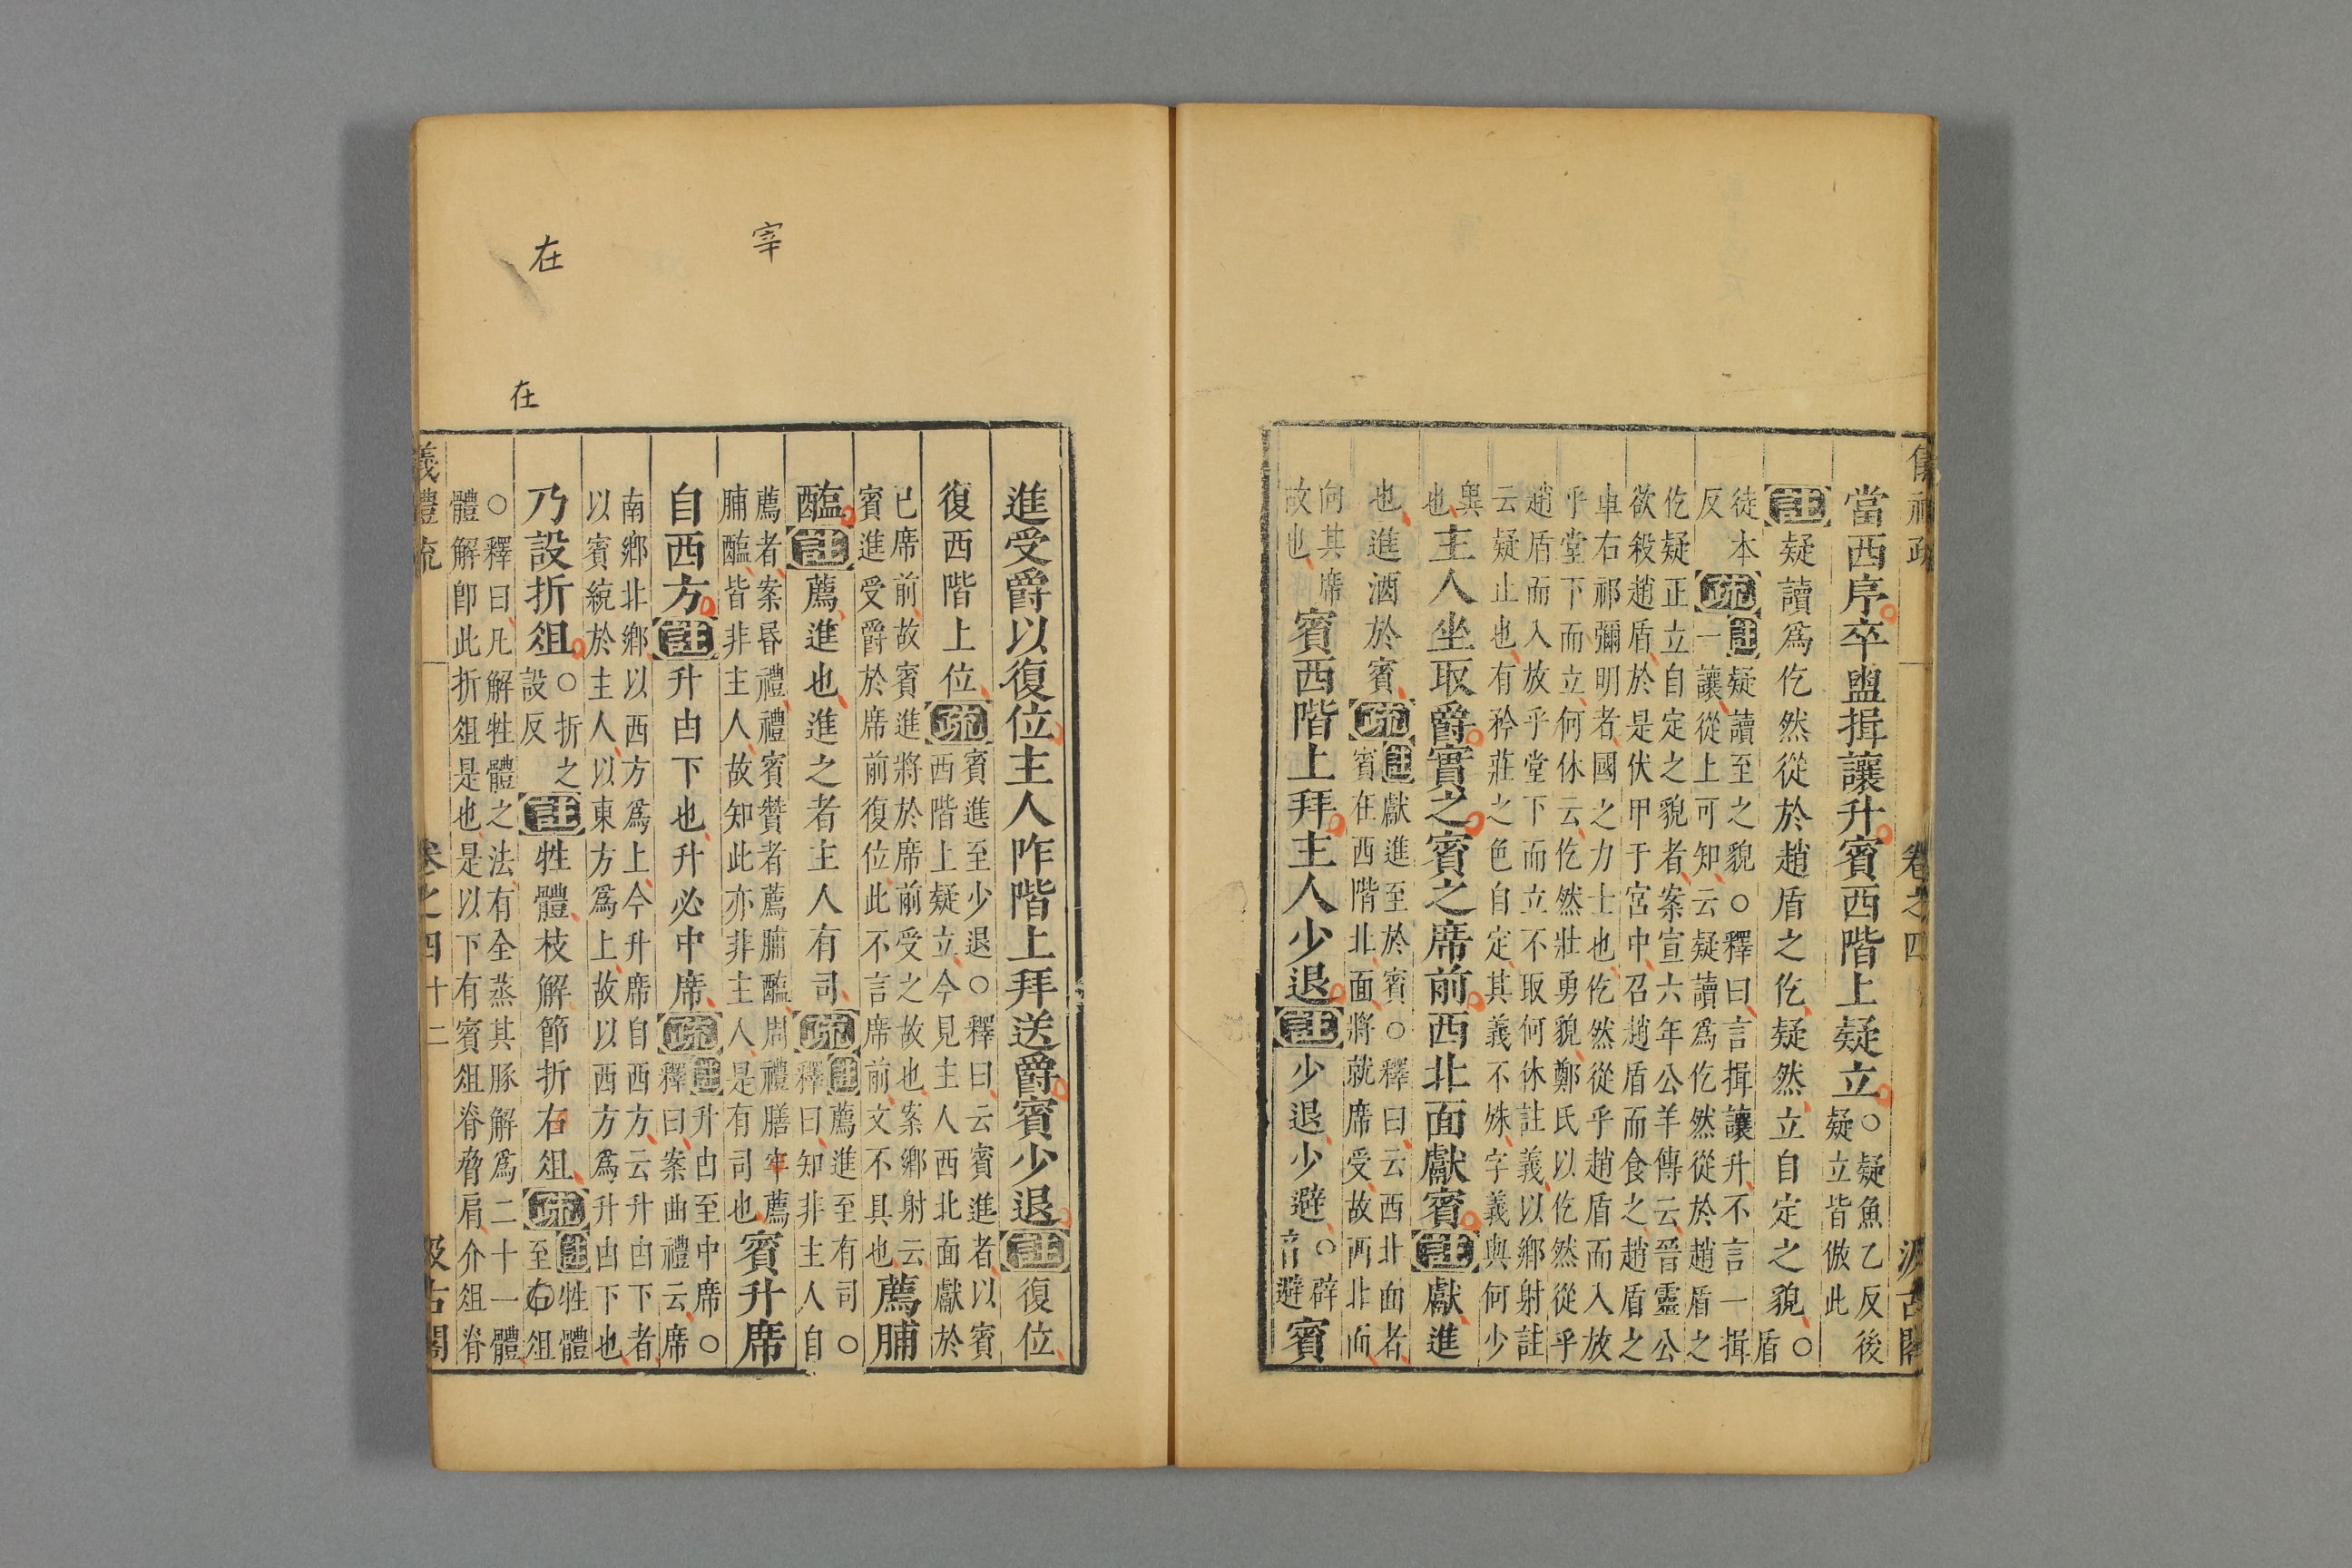 當西序卒盥揖讓升賓西階上疑立○疑魚乙反後
疑立皆倣此
註疑讀爲仡然從於趙盾之仡疑然立自定之貌○
盾
徒本
反
疏註疑讀至之貌○釋曰言揖讓升不言一揖
一讓從上可知云疑讀爲仡然從於趙盾之
仡疑正立自定之貌者案宣六年公羊傳云晉靈公
欲殺趙盾於是伏甲于宮中召趙盾而食之趙盾之
車右祁彌明者國之力士也仡然從乎趙盾而入放
乎堂下而立何休云仡然壯勇貌鄭氏以仡然從乎
趙盾而入放乎堂下而立不取何休註義以鄉射註
云疑止也有矜莊之色自定其義不姝字義與何少
異
也
主人坐取爵實之賓之席前西北面獻賓註獻進
也進酒於賓疏註獻進至於賓○釋曰云西北面者
賓在西階北面將就席受故西北面
向其席
故也
賓西階上拜主人少退註少退少避○辟
音避
賓
進受爵以復位主人阼階上拜送爵賓少退註復位
復西階上位疏賓進至少退○釋曰云賓進者以賓
西階上疑立今見主人西北面獻於
已席前故賓進將於席前受之故也案鄉射云
賓進受爵於席前復位此不言席前文不具也
薦脯
醢註薦進也進之者主人有司疏註薦進至有司○
釋曰知非主人自
薦者案昏禮禮賓贊者薦脯醢周禮膳宰薦
脯醢皆非主人故知此亦非主人是有司也
賓升席
自西方註升由下也升必中席疏註升由至中席○
釋曰案曲禮云席
南鄉北鄉以西方爲上今升席自西方云升由下者
以賓統於主人以東方爲上故以西方爲升由下也
乃設折俎○折之
設反
註牲體枝解節折右俎疏註牲體
至右俎
○釋曰凡解牲體之法有全烝其豚解爲二十一體
體解卽此折俎是也是以下有賓俎脊脅肩介俎脊
卷之四十二
汲古閣
宰
在
在